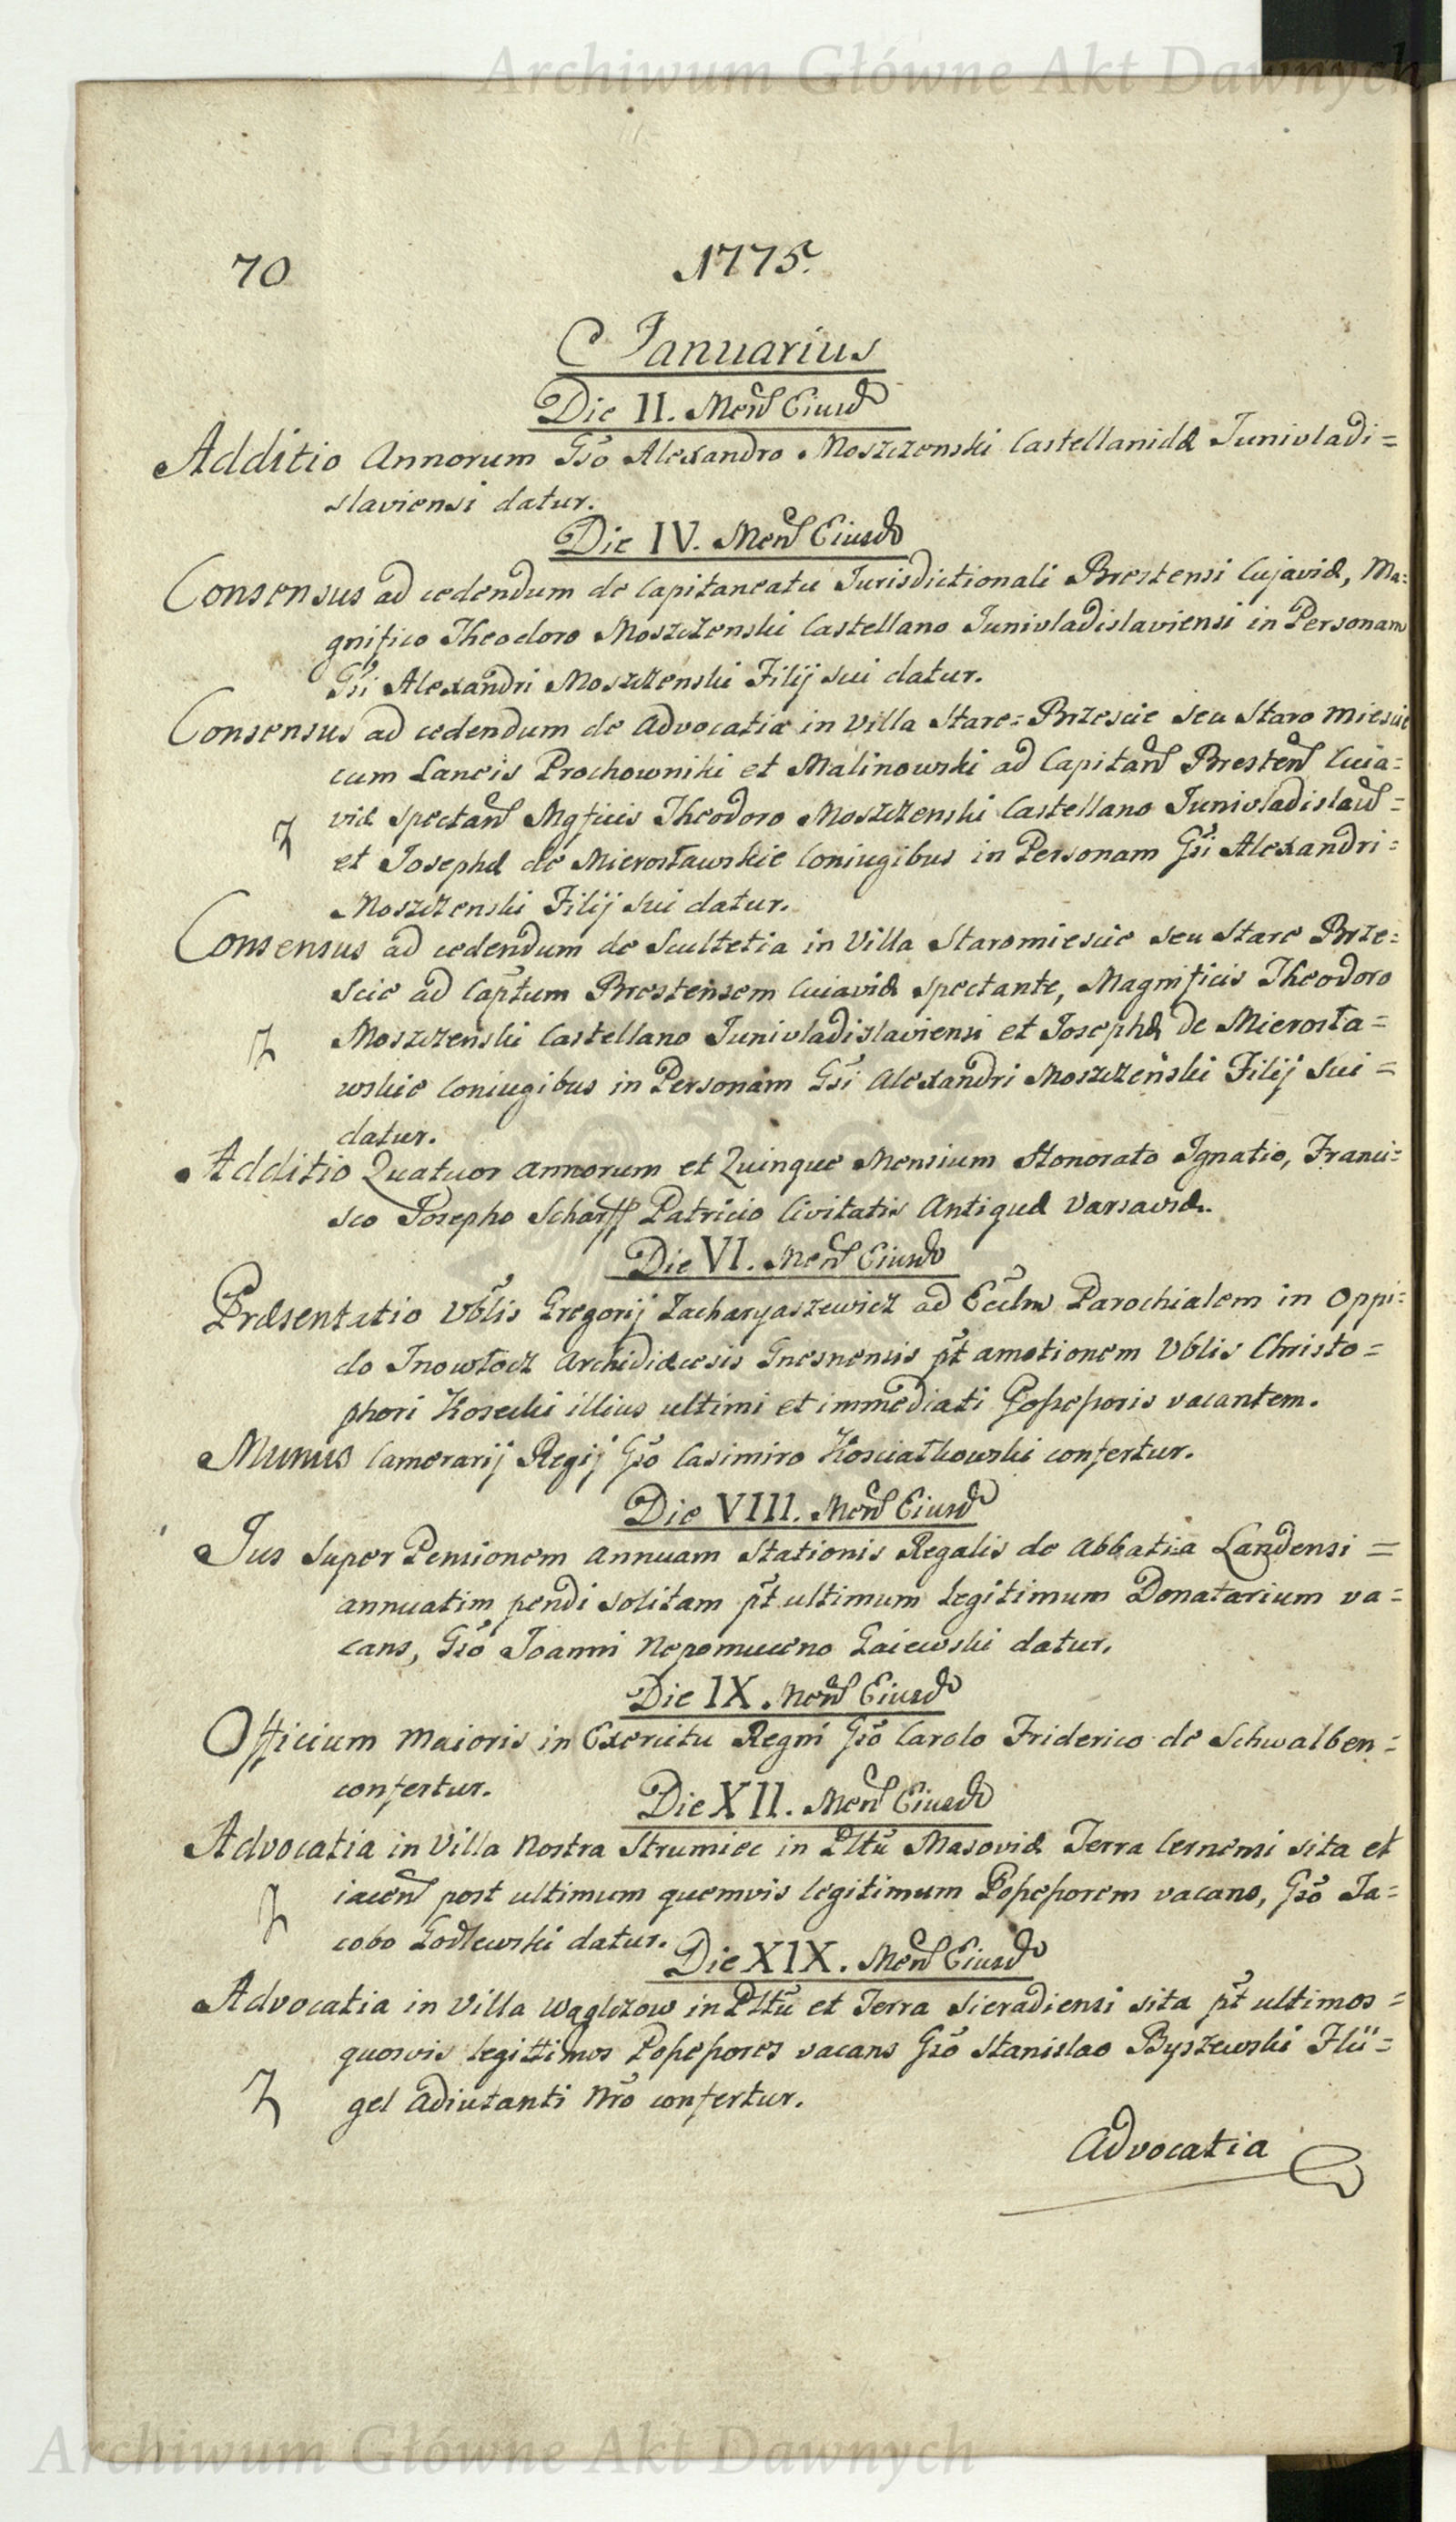 Archiwum Główne Akt Dawnych
70
1775.
Januarius
Die II. Mens Eiusd
Additio Annorum Gso Alexandro Moszczenski Castellanidæ Junivladi=
slaviensi datur.
Die IV. Mens Eiusd
Consensus ad cedendum de Capitaneatu Jurisdictionali Brestensi Cujaviæ, Ma=
gnifico Theodoro Moszczenski Castellano Junivladislaviensi in Personam
Gsi Alexandri Moszczenski Filij sui datur.
Consensus ad cedendum de Advocatia in Villa Stare=Brzescie seu Staro Miescie
cum Laneis Prochowniki et Malinowski ad Capitan Bresten Cuia=
viæ spectan Mgficis Theodoro Moszczenski Castellano Junivladislavi=
et Josephæ de Mierosławskie Coniugibus in Personam Gsi Alexandri=
Moszczenski Filij sui datur.
Consensus ad cedendum de Scultetia in Villa Staromiescie seu Stare Brze=
scie ad Captum Brestensem Cuiaviæ spectante, Magnificis Theodoro
Moszczenski Castellano Junivladislaviensi et Josephæ de Mierosła=
wskie Coniugibus in Personam Gsi Alexandri Moszczeński Filij sui=
datur.
Additio Quatuor annorum et Quinque Mensium Honorato Ignatio, Franci=
sco Josepho Scharff Patricio Civitatis Antiquæ Varsaviæ.
Die VI. Mens Eiusd
Præsentatio Vblis Gregorij Zacharyaszewicz ad Eccłm Parochialem in Oppi=
do Inowłodz Archidiæcesis Gnesnensis pt amotionem Vblis Christo=
phori Kosecki illius ultimi et immediati Possessoris vacantem.
Munus Camerarij Regij Gso Casimiro Kosciałkowski confertur.
Die VIII. Mens Eiusd
Jus super Pensionem annuam Stationis Regalis de Abbatia Landensi=
annuatim pendi solitam pt ultimum legitimum Donatarium va=
cans, Gso Joanni Nepomuceno Gaiewski datur.
Die IX. Mens Eiusd
Officium Maioris in Exercitu Regni Gso Carolo Friderico de Schwalben=
confertur.
Die XII. Mens Eiusd
Advocatia in Villa Nostra Strumiec in Plttu Masoviæ Terra Cernensi sita et
iacen post ultimum quemvis legitimum Possessorem vacans, Gso Ja=
cobo Godlewski datur.
Die XIX. Mens Eiusd
Advocatia in Villa Wąglczow in Plttu et Terra Sieradiensi sita pt ultimos=
quosvis legittimos Possessores vacans Gso Stanislao Byszewski Flü=
gel Adiutanti Nro confertur.
Advocatia
Archiwum Główne Akt Dawnych